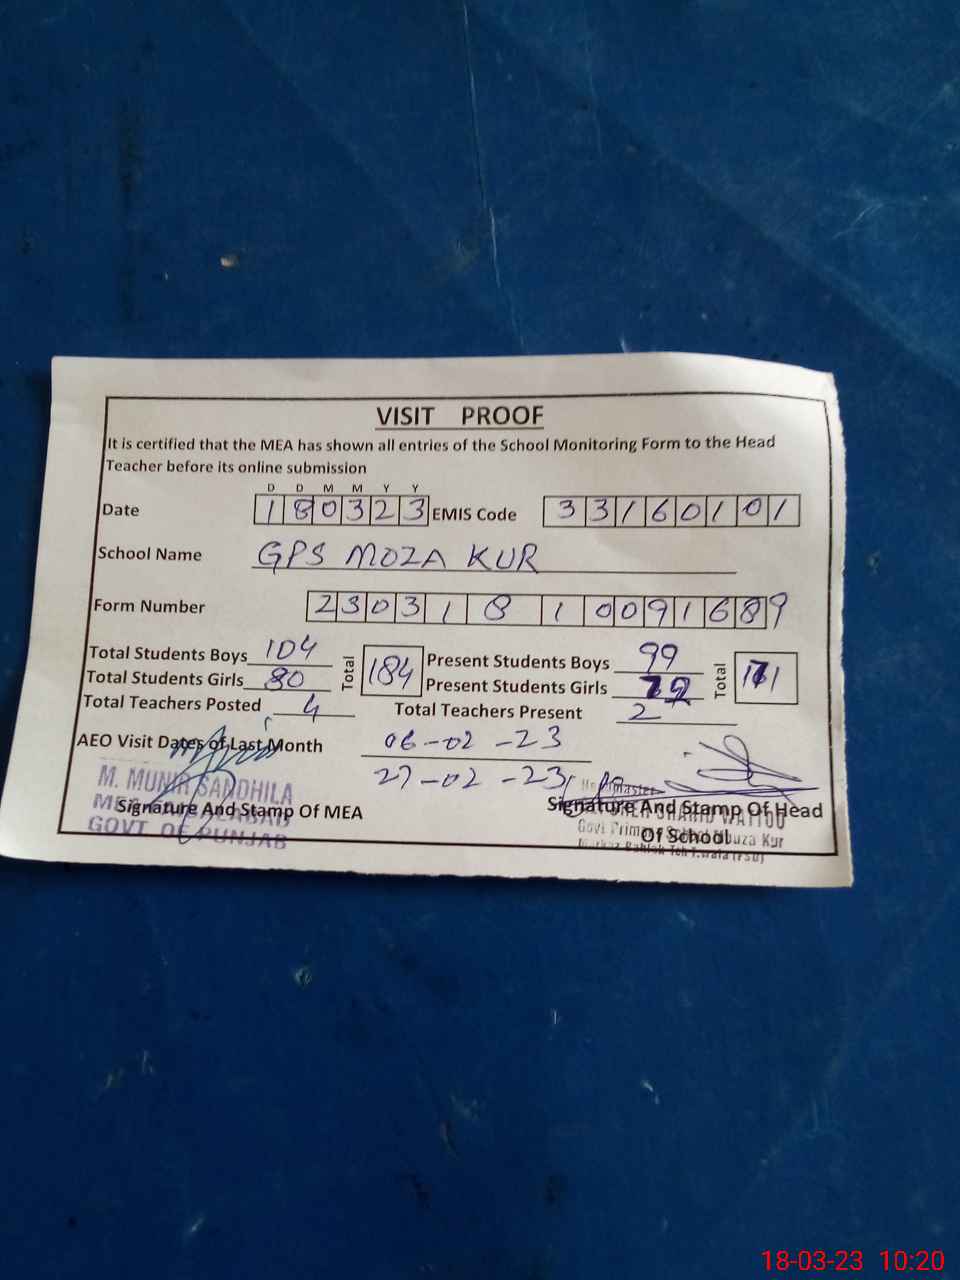 VISIT PROOF
It is certified that the MEA has shown all entries of the School Monitoring Form to the Head
Teacher before its online submission
D D M M Y Y
Date 180323 EMIS Code 33160101
School Name GPS MOZA KUR
Form Number 23031810091689
Total Students Boys 104 Total 184 Present Students Boys 99 Total 171
Total Students Girls 80 Present Students Girls 72
Total Teachers Posted 4 Total Teachers Present 2
AEO Visit Dates of Last Month 06-02-23
27-02-23
M. MUNIR SANDHILA
Signature And Stamp Of MEA
GOVT OF PUNJAB
Signature And Stamp Of Head
Of School
Kur
18-03-23 10:20